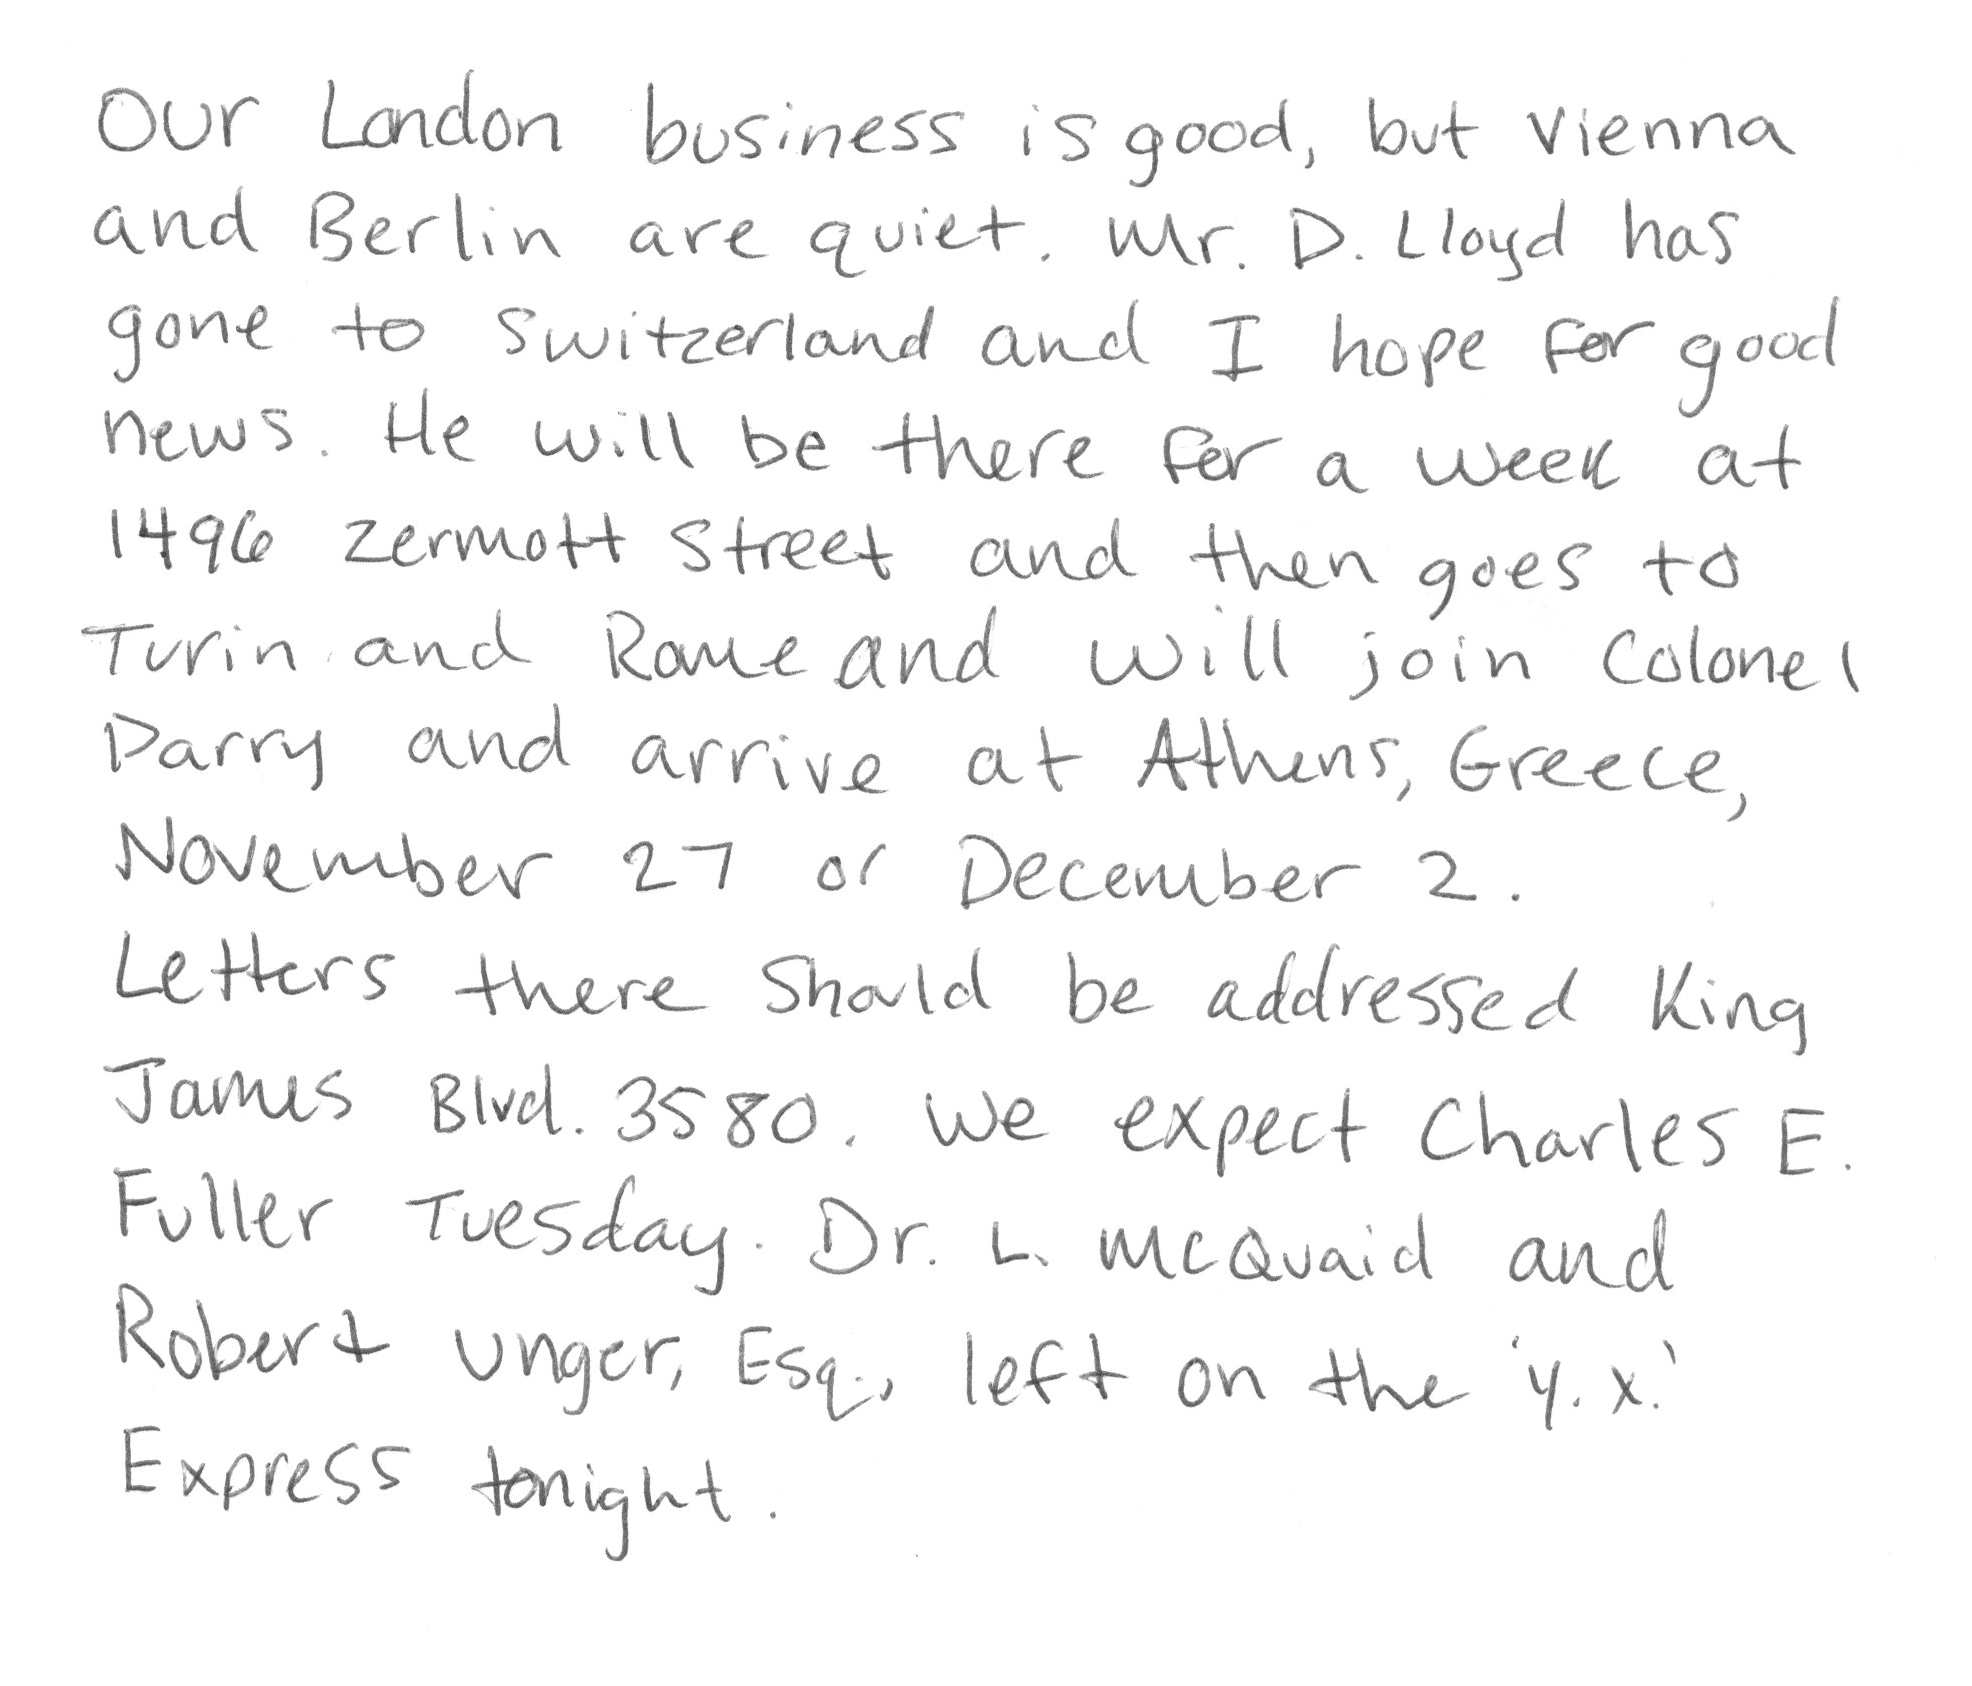 Our London business is good, but Vienna
and Berlin are quiet. Mr. D. Lloyd has
gone to Switzerland and I hope for good
news. He will be there for a week at
1496 Zermott Street and then goes to
Turin and Rome and will join Colonel
Parry and arrive at Athens, Greece,
November 27 or December 2.
Letters there should be addressed King
James Blvd. 3580. We expect Charles E.
Fuller Tuesday. Dr. L. McQuaid and
Robert Unger, Esq., left on the 'Y.X.'
Express tonight.